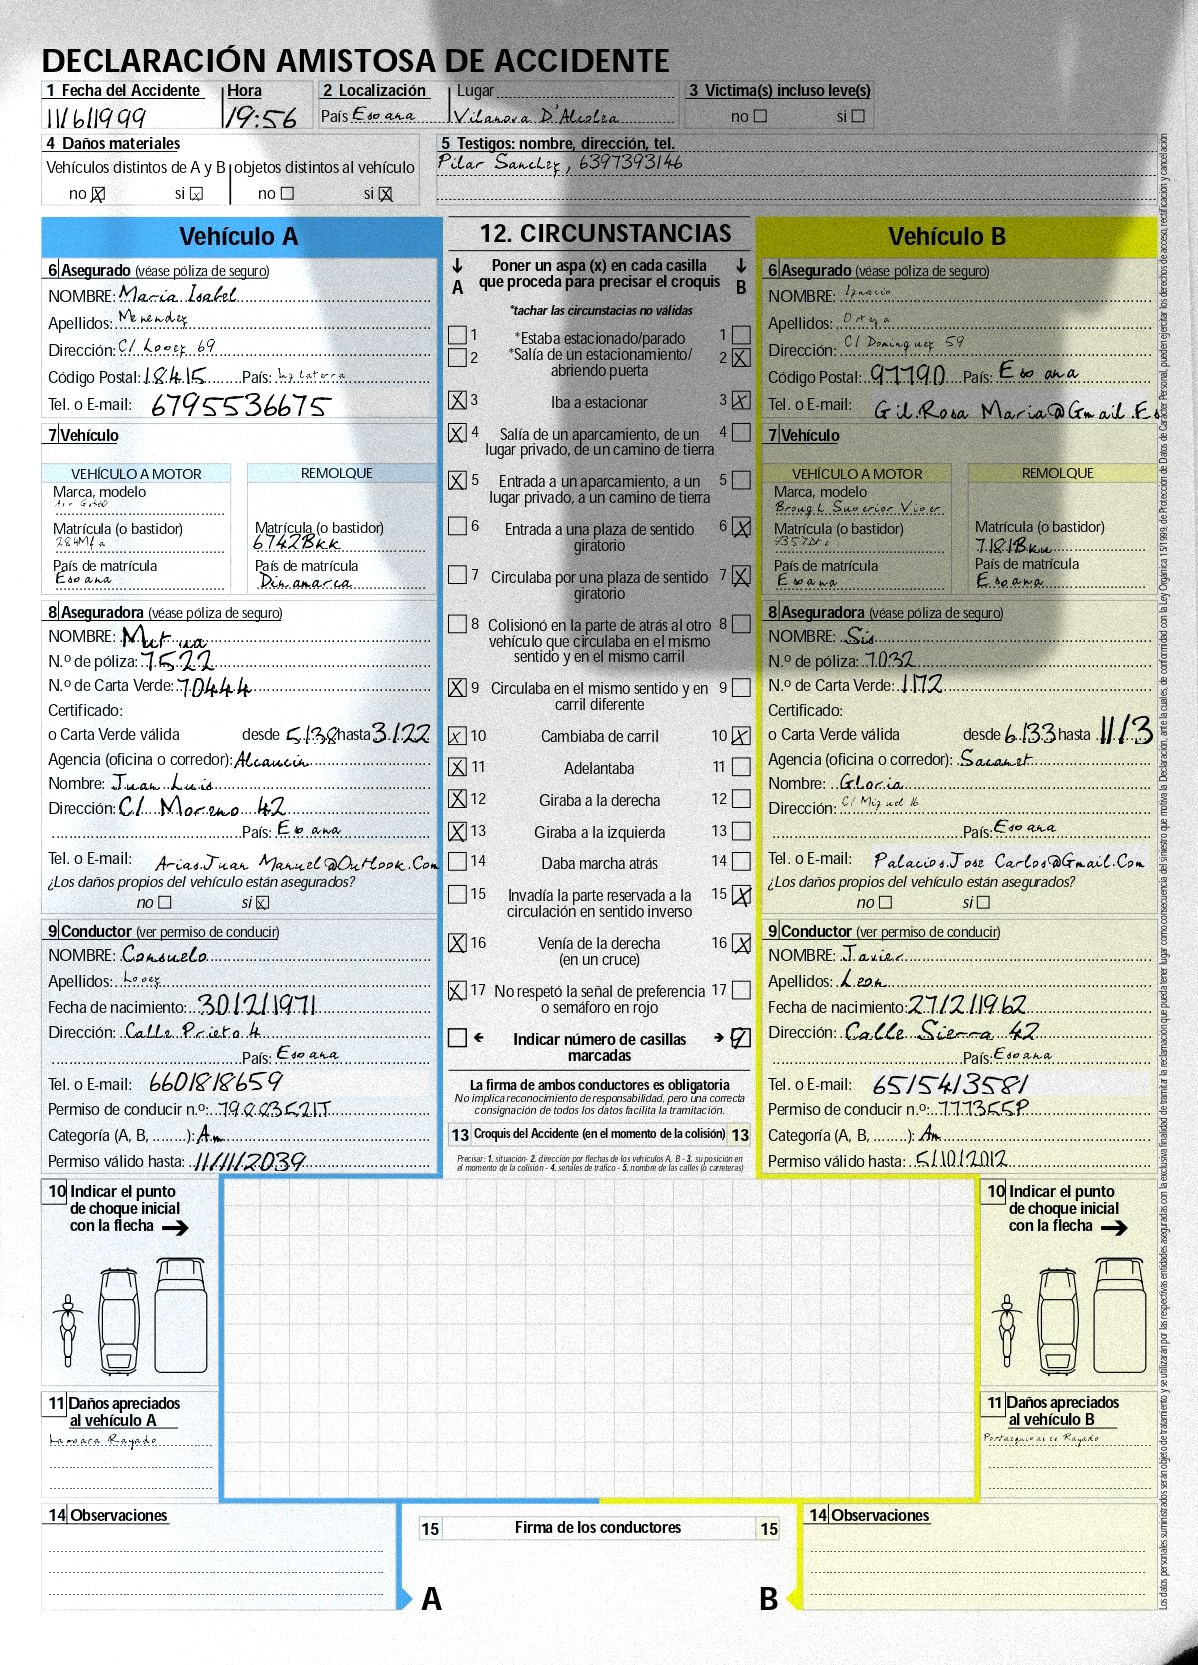 DECLARACIÓN AMISTOSA DE ACCIDENTE
1 Fecha del Accidente Hora 2 Localización Lugar 3 Victima(s) incluso leve(s)
11/6/1999 19:56 País Espana Vilanova D'Alcolea no si
4 Daños materiales 5 Testigos: nombre, dirección, tel.
Vehículos distintos de A y B objetos distintos al vehículo Pilar Sanchez, 6397393146
no X si X no si X
Vehículo A 12. CIRCUNSTANCIAS Vehículo B
Poner un aspa (x) en cada casilla que proceda para precisar el croquis
A B
*tachar las circunstacias no válidas
6 Asegurado (véase póliza de seguro)
NOMBRE: Maria Isabel
Apellidos: Menendez
Dirección: C/ Lopez 69
Código Postal: 18415 País: Inglaterra
Tel. o E-mail: 6795536675
7 Vehículo
VEHÍCULO A MOTOR REMOLQUE
Marca, modelo
Matrícula (o bastidor) Matrícula (o bastidor)
6742Bkk
País de matrícula País de matrícula
Espana Dinamarca
8 Aseguradora (véase póliza de seguro)
NOMBRE: Mutua
N.º de póliza: 7522
N.º de Carta Verde: 70444
Certificado:
o Carta Verde válida desde 5/38 hasta 3/22
Agencia (oficina o corredor): Alcaucin
Nombre: Juan Luis
Dirección: C/ Moreno 42
País: Espana
Tel. o E-mail: Arias.Juan Manuel@Outlook.Com
¿Los daños propios del vehículo están asegurados?
no si X
9 Conductor (ver permiso de conducir)
NOMBRE: Consuelo
Apellidos: Lopez
Fecha de nacimiento: 30/2/1971
Dirección: Calle Prieto 4
País: Espana
Tel. o E-mail: 6601818659
Permiso de conducir n.º: 79883521T
Categoría (A, B, ........): Am
Permiso válido hasta: 11/11/2039
1 *Estaba estacionado/parado 1
2 *Salía de un estacionamiento/ abriendo puerta 2 X
X 3 Iba a estacionar 3 X
X 4 Salía de un aparcamiento, de un lugar privado, de un camino de tierra 4
X 5 Entrada a un aparcamiento, a un lugar privado, a un camino de tierra 5
6 Entrada a una plaza de sentido giratorio 6 X
7 Circulaba por una plaza de sentido giratorio 7 X
8 Colisionó en la parte de atrás al otro vehículo que circulaba en el mismo sentido y en el mismo carril 8
X 9 Circulaba en el mismo sentido y en carril diferente 9
X 10 Cambiaba de carril 10 X
X 11 Adelantaba 11
X 12 Giraba a la derecha 12
X 13 Giraba a la izquierda 13
14 Daba marcha atrás 14
15 Invadía la parte reservada a la circulación en sentido inverso 15 X
X 16 Venía de la derecha (en un cruce) 16 X
X 17 No respetó la señal de preferencia o semáforo en rojo 17
Indicar número de casillas marcadas 9
La firma de ambos conductores es obligatoria
No implica reconocimiento de responsabilidad, pero una correcta
consignación de todos los datos facilita la tramitación.
13 Croquis del Accidente (en el momento de la colisión) 13
Precisar: 1. situación- 2. dirección por flechas de los vehículos A, B - 3. su posición en
el momento de la colisión - 4. señales de tráfico - 5. nombre de las calles (o carreteras)
6 Asegurado (véase póliza de seguro)
NOMBRE: Ignacio
Apellidos: Ortega
Dirección: C/ Dominguez 59
Código Postal: 97790 País: Espana
Tel. o E-mail: Gil.Rosa Maria@Gmail.Es
7 Vehículo
VEHÍCULO A MOTOR REMOLQUE
Marca, modelo
Brough Superior Viper
Matrícula (o bastidor) Matrícula (o bastidor)
País de matrícula País de matrícula
Espana Espana
8 Aseguradora (véase póliza de seguro)
NOMBRE: Sis
N.º de póliza: 7032
N.º de Carta Verde: 1172
Certificado:
o Carta Verde válida desde 6/33 hasta 11/3
Agencia (oficina o corredor): Sacanet
Nombre: Gloria
Dirección: C/ Miguel 16
País: Espana
Tel. o E-mail: Palacios.Jose Carlos@Gmail.Com
¿Los daños propios del vehículo están asegurados?
no si
9 Conductor (ver permiso de conducir)
NOMBRE: Javier
Apellidos: Leon
Fecha de nacimiento: 27/2/1962
Dirección: Calle Sierra 42
País: Espana
Tel. o E-mail: 6515413581
Permiso de conducir n.º:
Categoría (A, B, ........): Am
Permiso válido hasta: 5/10/2012
10 Indicar el punto de choque inicial con la flecha
10 Indicar el punto de choque inicial con la flecha
11 Daños apreciados al vehículo A
Lampara Rayado
11 Daños apreciados al vehículo B
Portaequipajes Rayado
14 Observaciones
15 Firma de los conductores 15
14 Observaciones
A B
Los datos personales suministrados serán objeto de tratamiento y se utilizarán por las respectivas entidades aseguradas con la exclusiva finalidad de tramitar la reclamación que pueda tener lugar como consecuencia del siniestro que motiva la Declaración, ante la cuales, de conformidad con la Ley Orgánica 15/1999, de Protección de Datos de Carácter Personal, pueden ejercitar los derechos de acceso, rectificación y cancelación